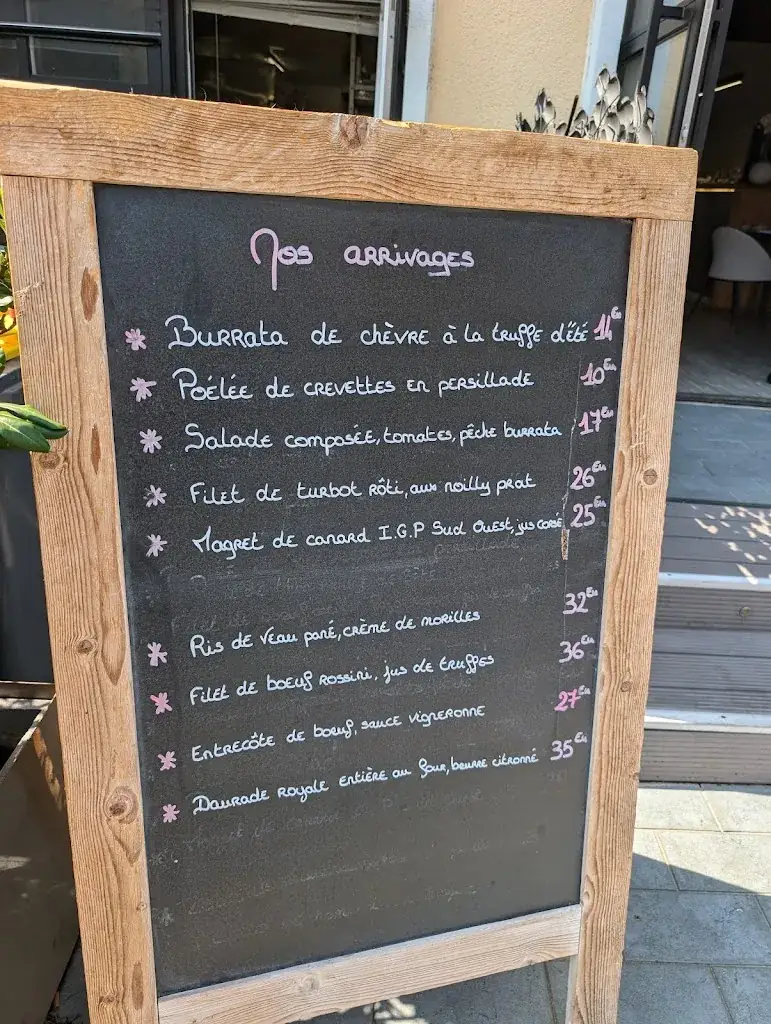 Nos arrivages
* Burrata de chèvre à la truffe d'été 14Eu
* Poélée de crevettes en persillade 10Eu
* Salade composée, tomates, pêche burrata 17Eu
* Filet de turbot rôti, aux noilly prat 26Eu
* Magret de canard I.G.P Sud Ouest, jus corsé 25Eu
* Ris de veau pané, crème de morilles 32Eu
* Filet de boeuf rossini, jus de truffes 36Eu
* Entrecôte de boeuf, sauce vigneronne 27Eu
* Daurade royale entière au four, beurre citronné 35Eu